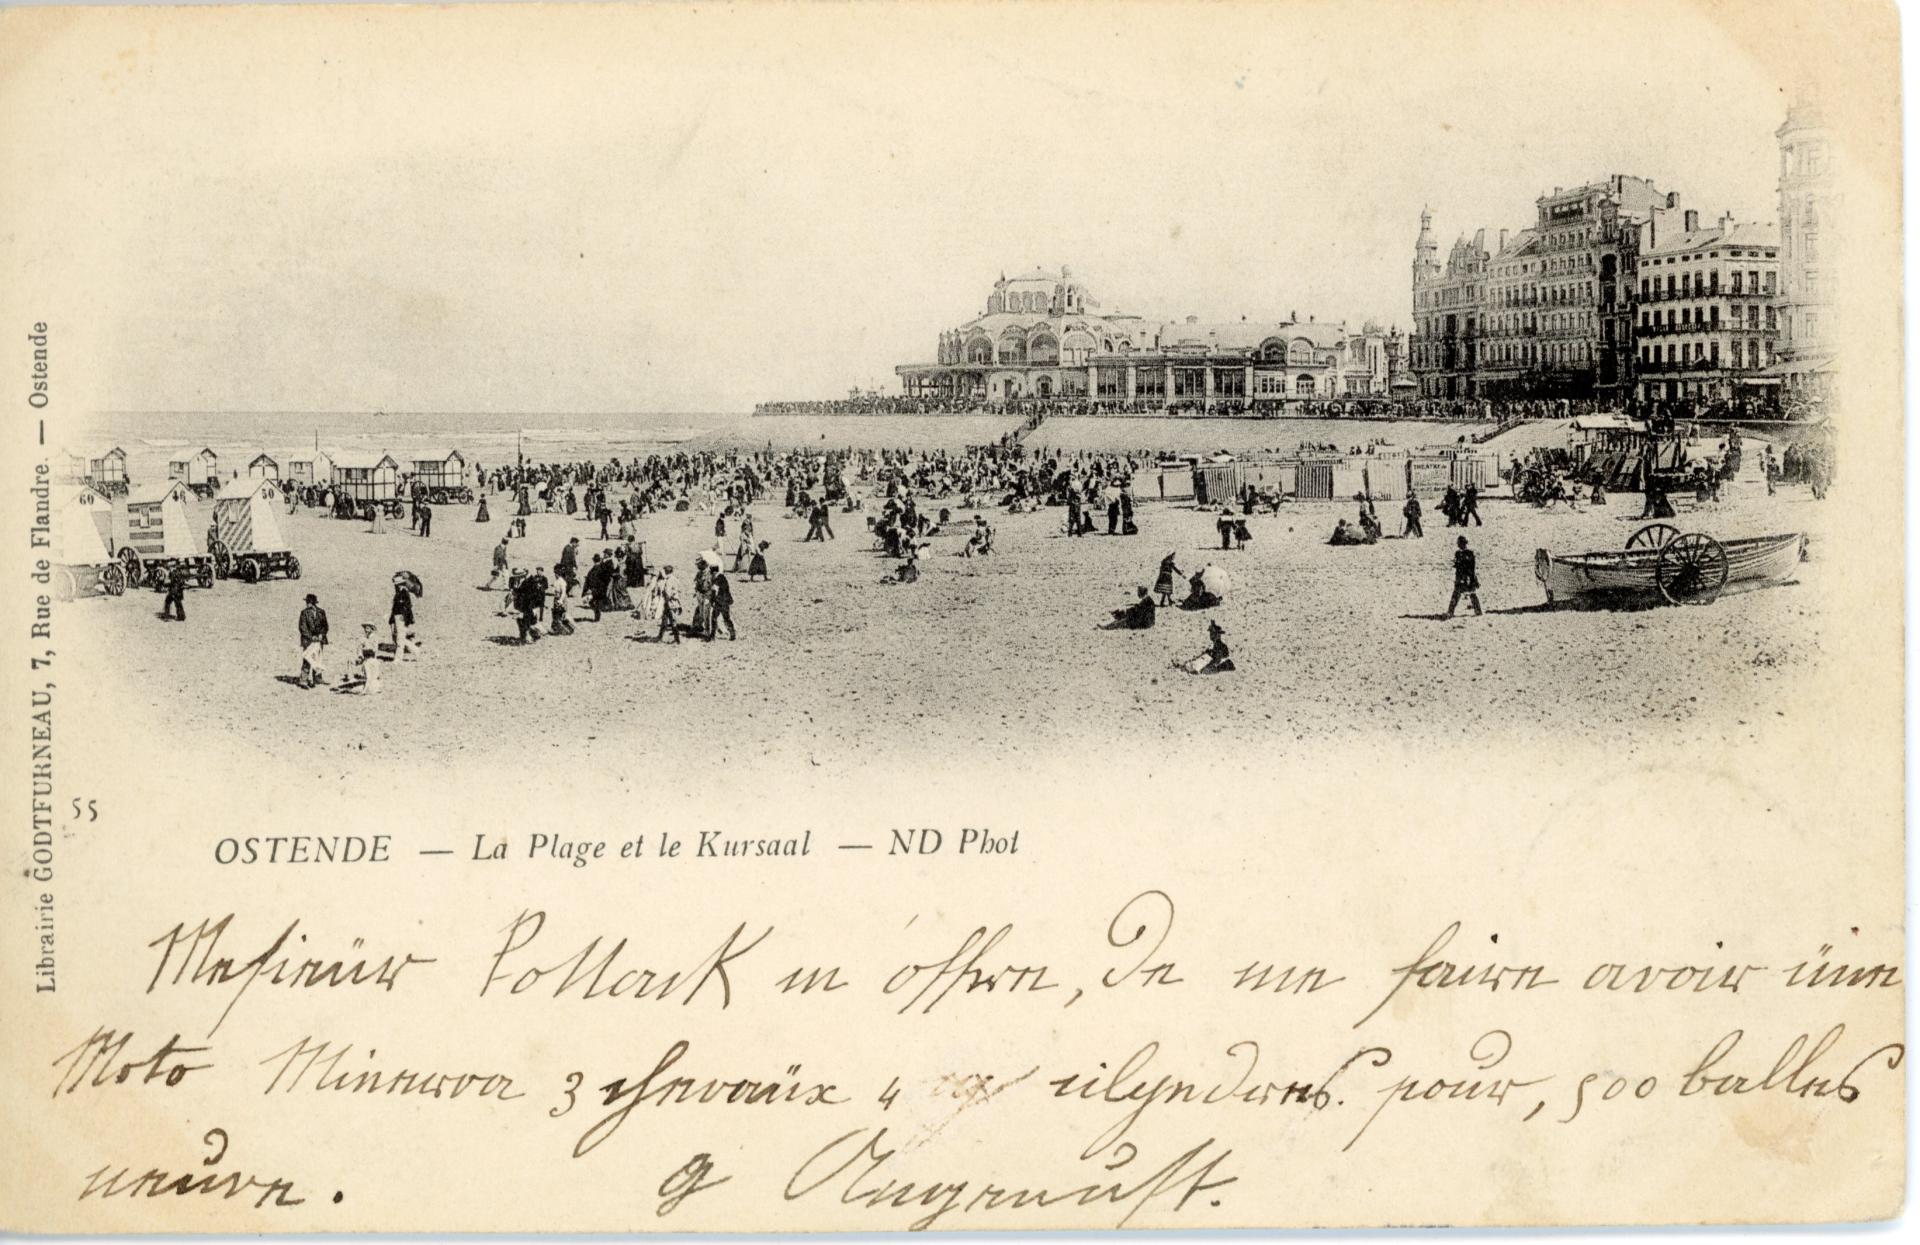 Librairie GODTFURNEAU, 7, Rue de Flandre. — Ostende
60
50
THEATRE
55
OSTENDE — La Plage et le Kursaal — ND Phot
Mesieur Pollack m'offre, De me faire avoir une
Moto Minerva 3 chevaux 4 cilyndres. pour, 500 balles
neuve. g